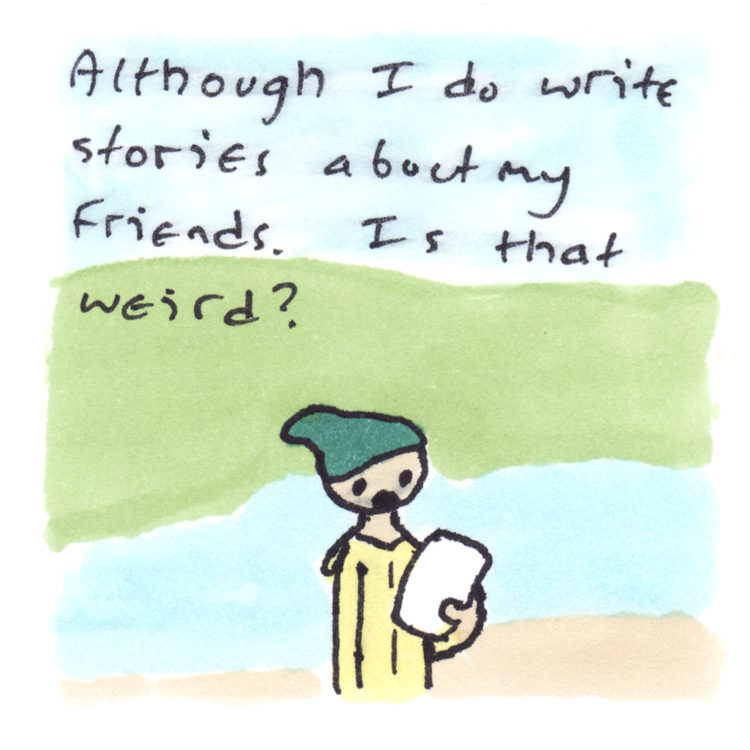 Although I do write
stories about my
friends. Is that
weird?